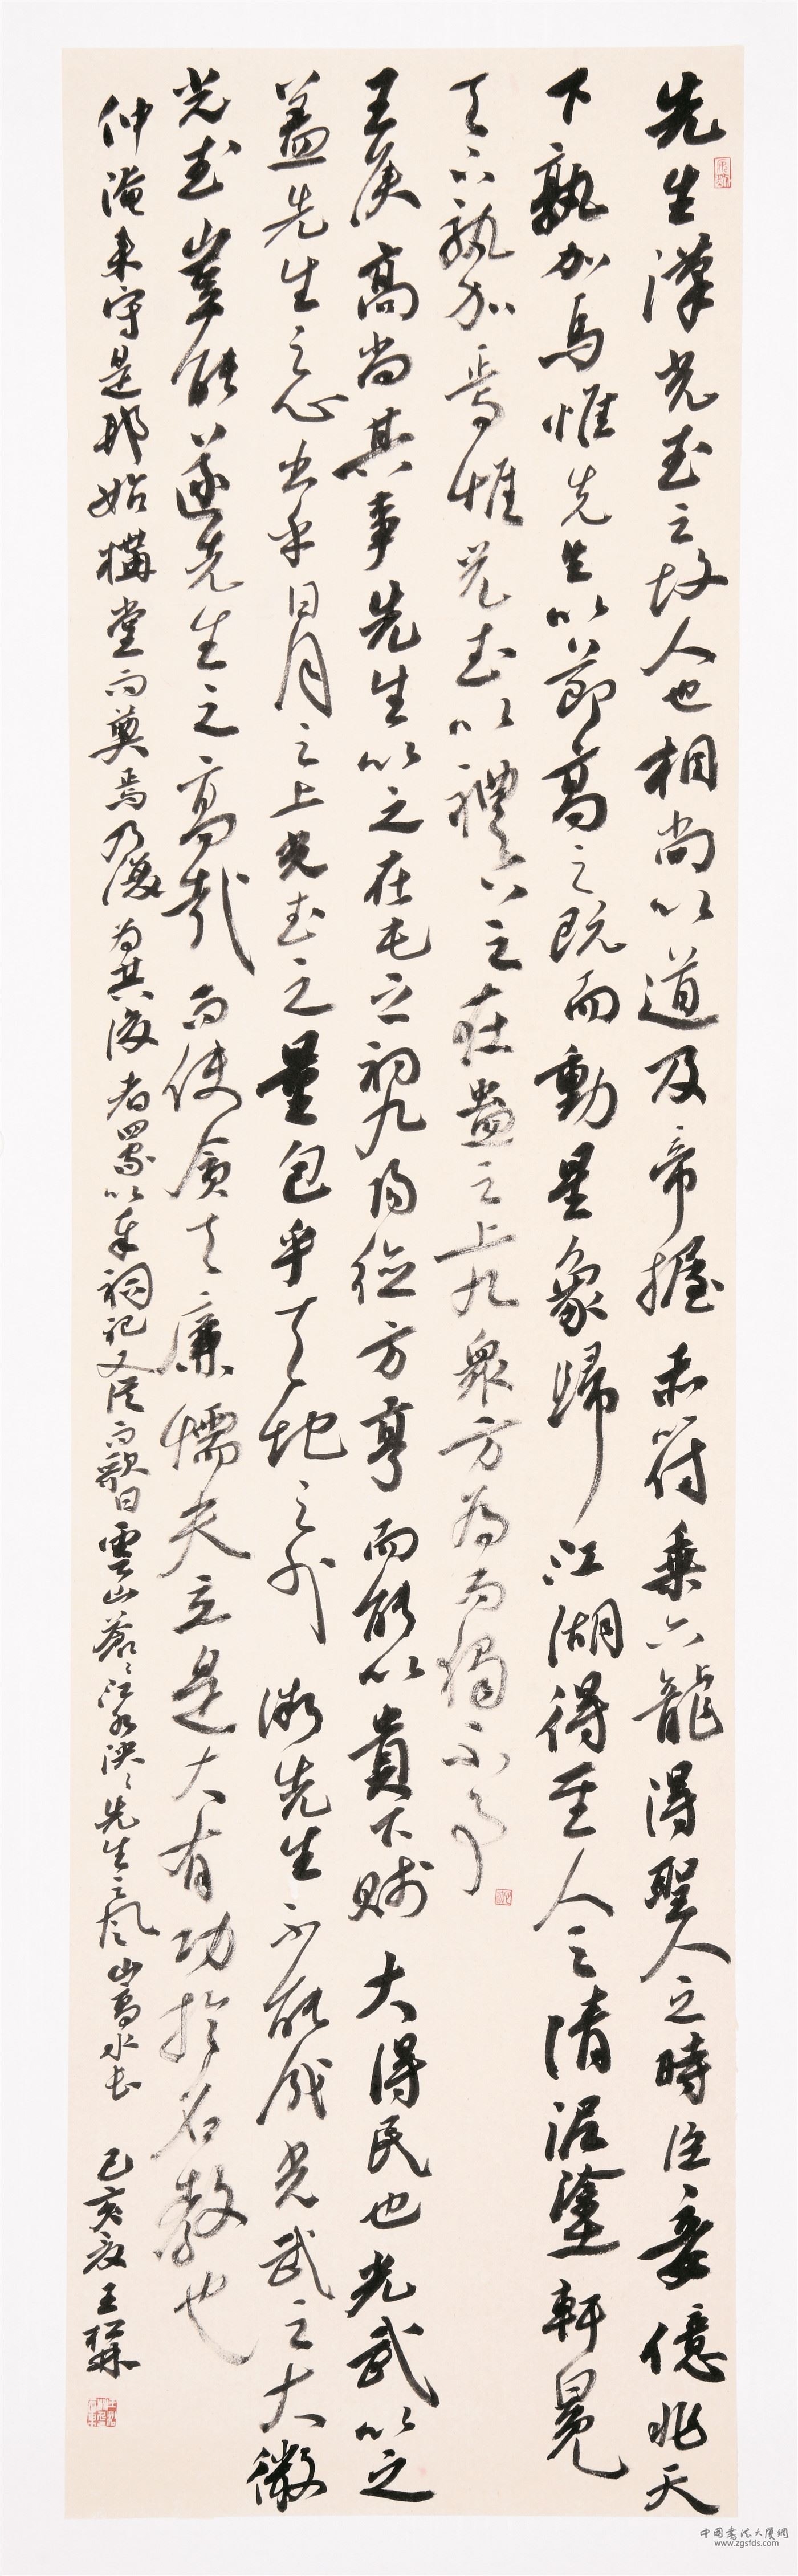 先生漢光武之故人也相尚以道及帝握赤符乘六龍得聖人之時臣妾億兆天
下孰加焉惟先生以節高之既而動星象歸江湖得聖人之清泥塗軒冕
天下孰加焉惟光武以禮下之在蠱之上九眾方為而獨不事
王侯高尚其事先生以之在屯之初九陽德方亨而能以貴下賤大得民也光武以之
蓋先生之心出乎日月之上光武之量包乎天地之外微先生不能成光武之大微
光武豈能遂先生之高哉而使貪夫廉懦夫立是大有功於名教也
仲淹來守是邦始構堂而奠焉乃復為其後者四家以奉祠祀又從而歌曰雲山蒼々江水泱々先生之風山高水長 己亥夏王
中国书法大厦網
www.zgsfds.com